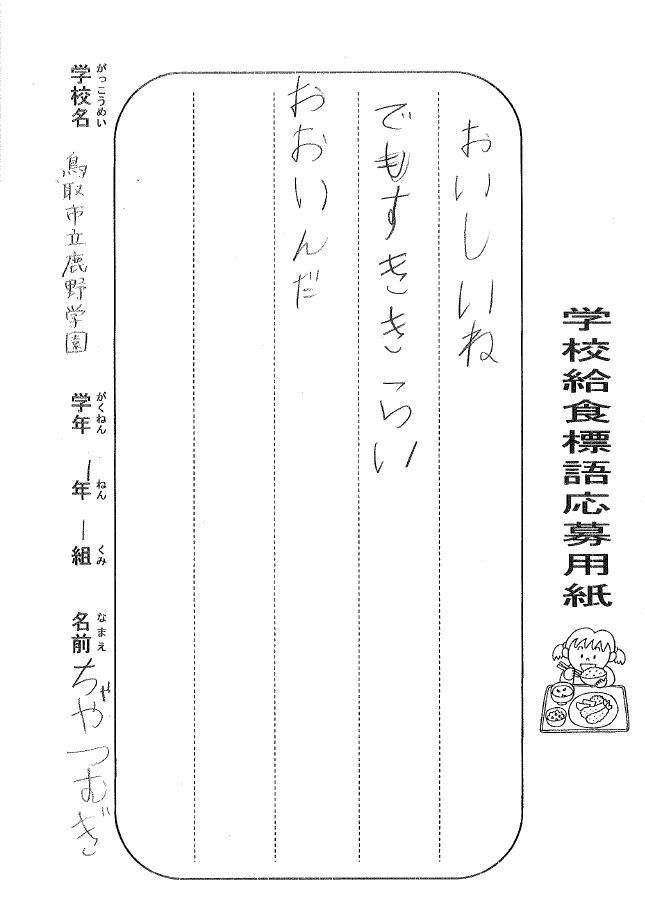 学校給食標語応募用紙
おいしいね
でもすききらい
おおいんだ
学校名 がっこうめい 鳥取市立鹿野学園
学年 がくねん 1年 ねん 1組 くみ
名前 なまえ ちゃや つむぎ